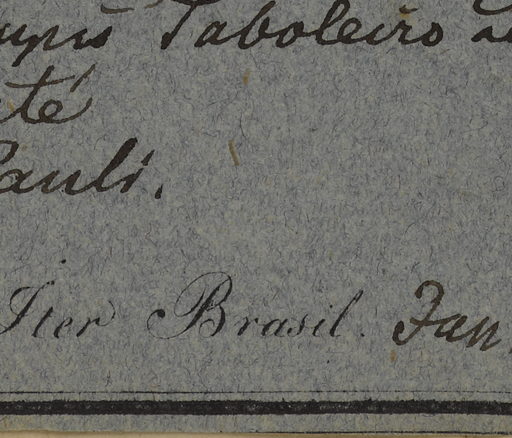 Taboleiro
té
Pauli.
Iter Brasil. Jan